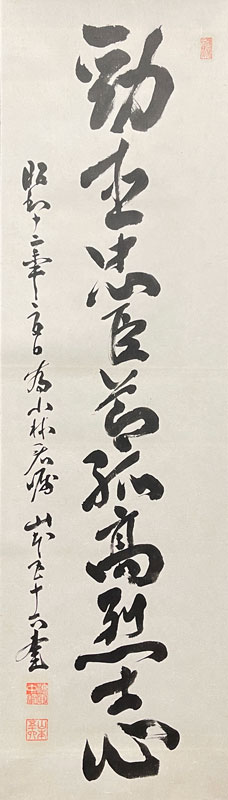 勁直忠臣節孤高烈士心
昭和十二年一月為小林君嘱 山本五十六書
山本五十六